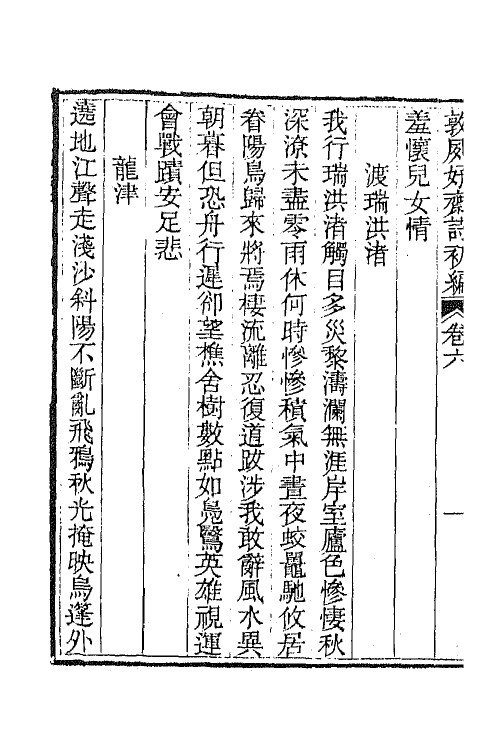 敦夙好齋詩初編 卷六 一
羞懷兒女情
渡瑞洪渚
我行瑞洪渚觸目多災黎濤瀾無涯岸室廬色慘悽秋
深潦未盡零雨休何時慘慘積氣中晝夜蛟鼉馳攸居
眷陽鳥歸來將焉棲流離忍復道跋涉我敢辭風水異
朝暮但恐舟行遲卻望樵舍樹數點如鳧鷖英雄視運
會戰蹟安足悲
龍津
遶地江聲走淺沙斜陽不斷亂飛鴉秋光掩映烏篷外